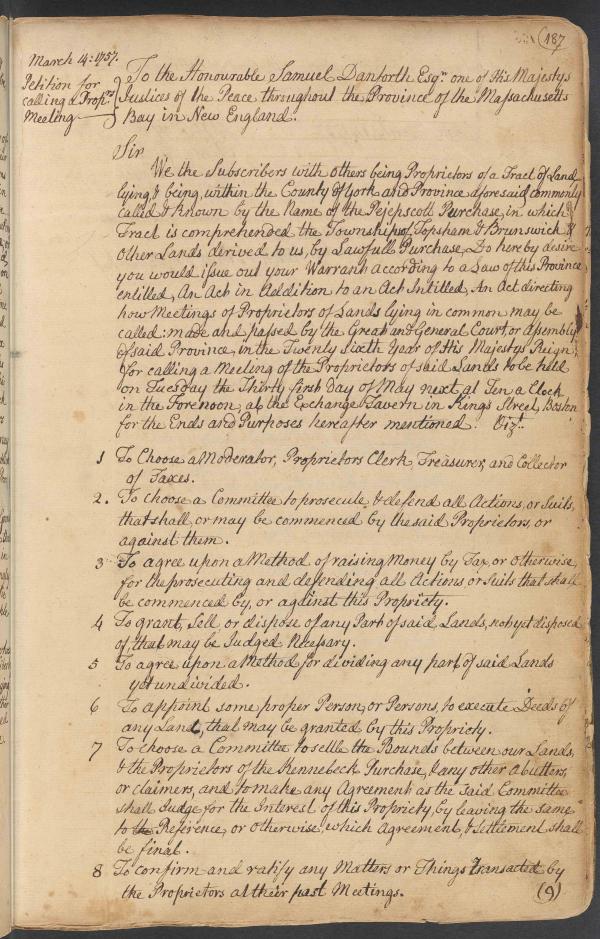 187
March 14: 1757.
Petition for
calling a Prop.rs
Meeting
To the Honourable Samuel Danforth Esq.r one of His Majestys
Justices of the Peace throughout the Province of the Massachusetts
Bay in New England.
Sir
We the Subscribers with others being Proprietors of a Tract of Land
lying, & being, within the County of York and Province aforesaid commonly
called & known by the Name of the Pejepscott Purchase, in which
Tract is comprehended the Townships of Topsham & Brunswick &
other Lands derived to us, by Lawfull Purchase, Do hereby desire
you would issue out your Warrant according to a Law of this Province
entitled, An Act in Addition to an Act Intitled, An Act directing
how Meetings of Proprietors of Lands lying in common may be
called: made and passed by the Great and General Court or Assembly
of said Province, in the Twenty sixth Year of His Majestys Reign;
for calling a Meeting of the Proprietors of said Lands to be held
on Tuesday the Thirty first day of May next at Ten a Clock
in the Forenoon, at the Exchange Tavern in Kings Street, Boston
for the Ends and Purposes hereafter mentioned. Viz.t
1 To Choose a Moderator, Proprietors Clerk, Treasurer, and Collector
of Taxes.
2. To choose a Committee to prosecute, & defend all Actions, or Suits,
that shall, or may be commenced by the said Proprietors, or
against them.
3 To agree upon a Method of raising Money by Tax, or otherwise,
for the prosecuting and defending all Actions or Suits that shall
be commenced by, or against this Propriety.
4 To grant, Sell or dispose of any Part of said Lands, not yet disposed
of, that may be Judged Necessary.
5 To agree upon a Method for dividing any part of said Lands
yet undivided.
6 To appoint some proper Person, or Persons, to execute Deeds of
any Land, that may be granted by this Propriety.
7 To choose a Committee to settle the Bounds between our Lands,
& the Proprietors of the Kennebeck Purchase, & any other abutters,
or claimers, and to make any Agreement as the said Committee
shall Judge for the Interest of this Propriety, by leaving the same
to the Reference, or otherwise, which Agreement, & Settlement shall
be final.
8 To confirm and ratify any Matters or Things transacted by
the Proprietors at their past Meetings.
(9)